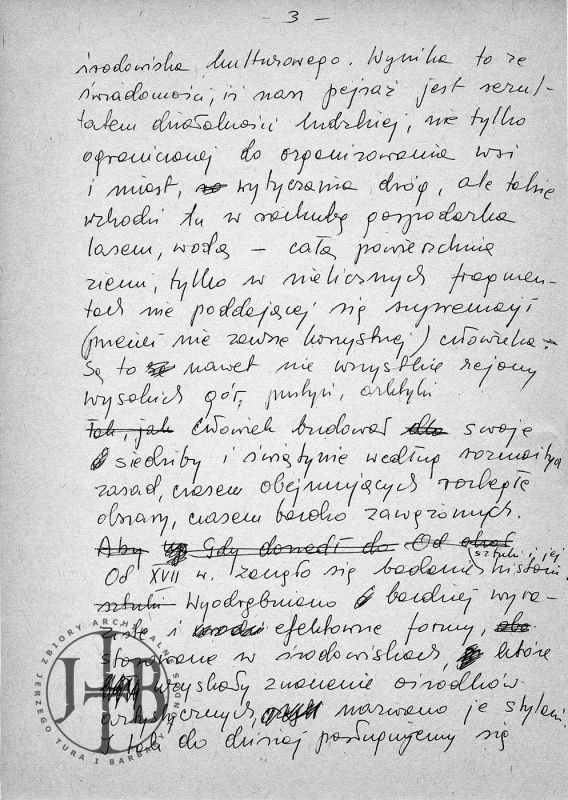 - 3 -
środowiska kulturowego. Wynika to ze
świadomości, iż nasz pejzaż jest rezul-
tatem działalności ludzkiej, nie tylko
ograniczonej do organizowania wsi
i miast, wytyczania dróg, ale także
wchodzi tu w rachubę gospodarka
lasem, wodą – całą powierzchnią
ziemi, tylko w nielicznych fragmen-
tach nie poddającej się supremacji
(przecież nie zawsze korzystnej) człowieka.
Są to nawet nie wszystkie rejony
wysokich gór, pustyń, arktyki
Tak, jak człowiek budował dla swoje
siedziby i świątynie według rozmaitych
zasad, czasem obejmujących rozległe
obszary, czasem bardzo zawężonych.
Aby Gdy doszedł do Od
sztuki i jej
Od XVII w. zaczęto się badaniem historii
sztuki Wyodrębniano bardziej wyra-
ziste i efektowne formy,
stosowane w środowiskach, które
uzyskały znaczenie ośrodków
artystycznych nazwano je stylami.
I tak do dzisiaj posługujemy się
ZBIORY ARCHIWALNE
JERZEGO TURA I BARBARY
JHB